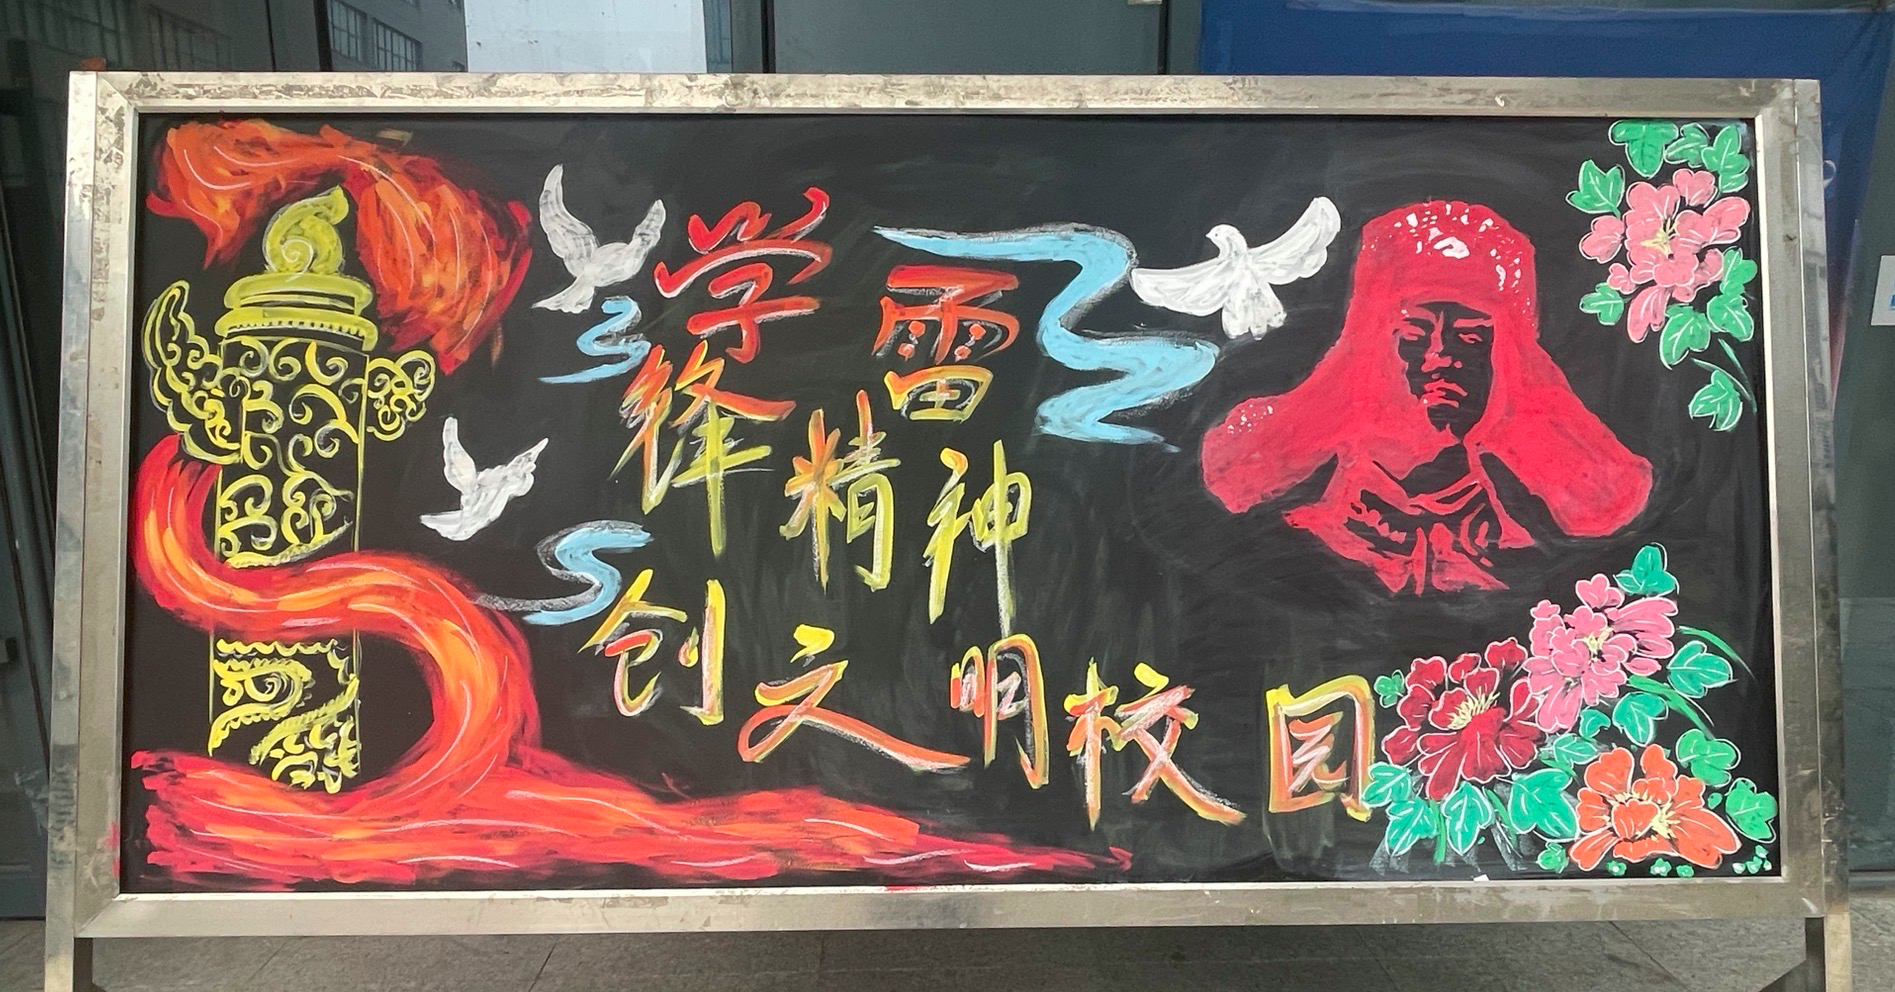 学雷锋精神
创文明校园